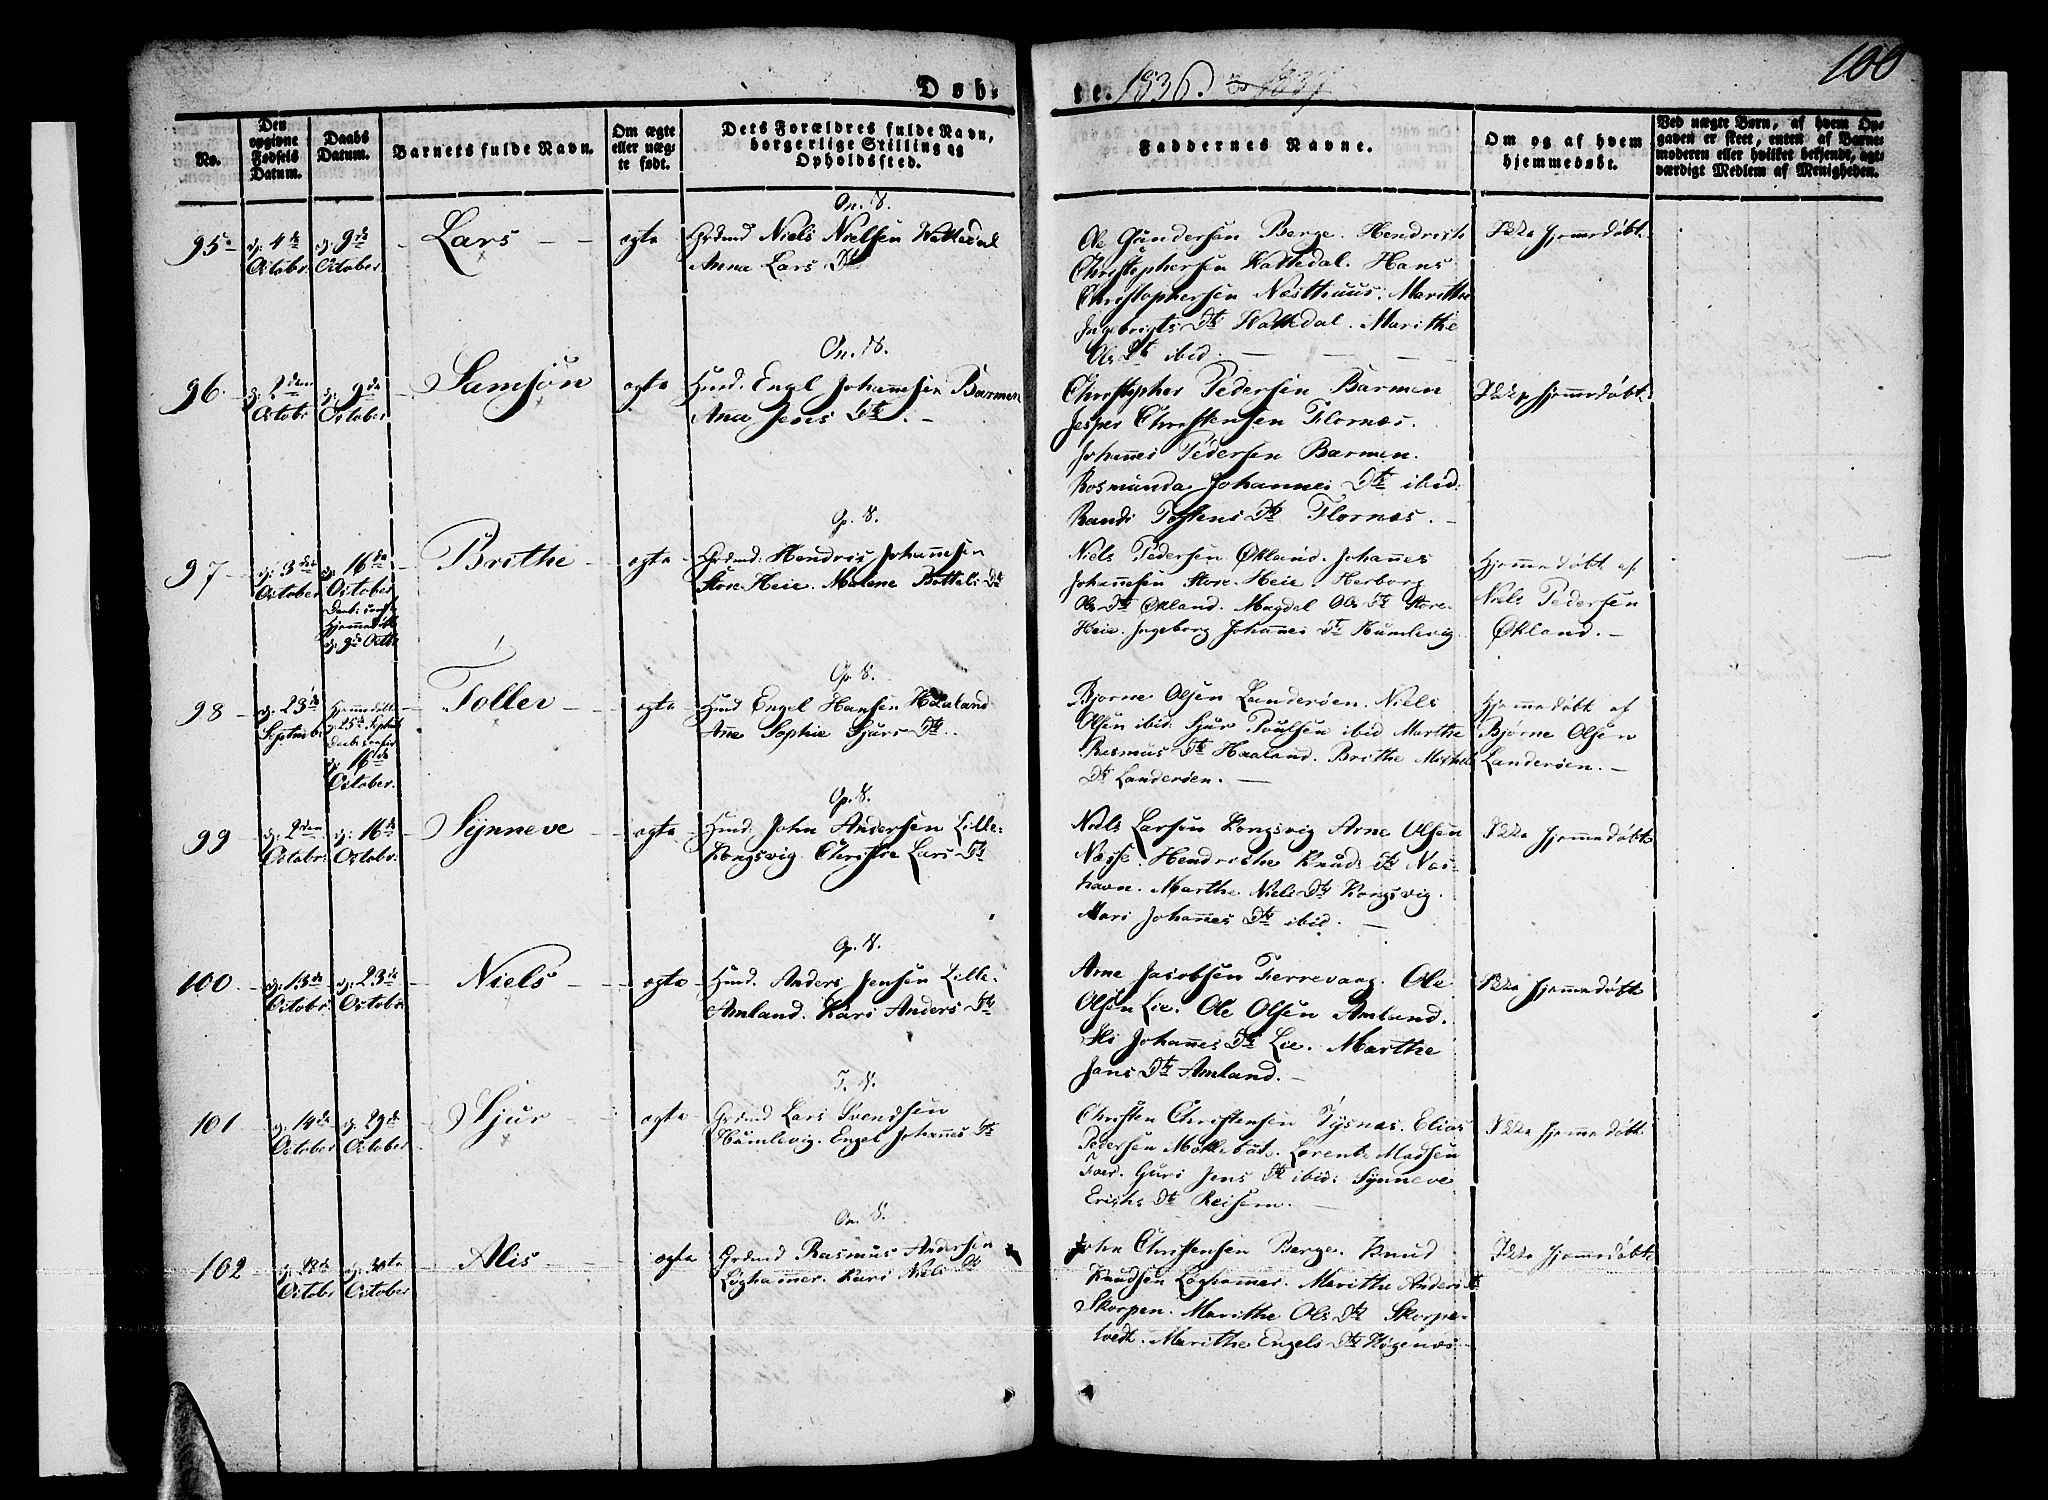 100
Døb-
te. 1836.
No.
Den opgivne Fødsels Datum.
Daabs Datum.
Barnets fulde Navn.
Om ægte eller uægte født.
Dets Forældres fulde Navn, borgerlige Stilling og Opholdssted.
Faddernes Navne.
Om og af hvem hjemmedøbt.
Ved uægte Børn, af hvem Opgaven er skeet, enten af Barnemoderen eller hvilket bekjendt, agtværdigt Medlem af Menigheden.
95
d: 4de October
d: 9de October
Lars
ægte
Niels Nielsen Wattedal
Anna Lars Dtr
Ole Gundersen Berge. Hendrich
Christophersen Wattedal. Hans
Christophersen Næsthuus. Marithe
Ingebrigts Dtr Wattedal. Marithe
Ols Dtr ibid.
Ikke hjemmedøbt
96
d: 2den October
d: 9de October
Samson
ægte
Huusd: Engel Johannesen Barmen
Ana Jens Dtr.
Christopher Pedersen Barmen
Jesper Christensen Flornæs.
Johannes Pedersen Barmen.
Rosmunda Johannes Dtr ibid:
Randi Torstens Dtr Flornæs.
Ikke hjemmedøbt
97
d: 3die October
d: 16de October
Hjemmedøbt
d: 9de Octbr
Brithe
ægte
Hendrich Johannesen
Store-Heie. Malene Dtr
Niels Pedersen Økland. Johannes
Johannesen Store-Heie. Herborg
Ols Dtr Økland. Magdel Ols Dtr Store-
Heie. Ingeborg Johannes Dtr Humlevig
Hjemmedøbt af
Niels Pedersen
Økland.
98
d: 23de Septembr
Hjemmedøbt
d: 25de Septbr
d: 16de
October.
Toller
ægte
Huusd Engel Hansen Haaland
Anne Sophie Sjurs Dtr.
Bjørne Olsen Landerøen. Niels
Olsen ibid: Sjur Poulsen ibid Marthe
Rasmus Dtr Haaland. Brithe Michel
Dtr Landerøen.
Hjemmedøbt af
Bjørne Olsen
Landerøen.
99
d: 2den Octobr:
d: 16de Octobr:
Synneve
ægte
Huusd. John Andersen Lille-
Kongsvig. Christie Lars Dtr
Niels Larsen Kongsvig Arne Olsen
Næsse. Hendrichke Knuds Dtr Næs-
havn. Marthe Niels Dtr Kongsvig.
Mari Johannes Dtr ibid.
Ikke hjemmedøbt
100
d: 13de Octobr:
d: 23de Octobr
Niels
ægte
Huusd. Anders Jensen Lille-
Amland. Kari Anders Dtr
Arne Jacobsen Færrevaag. Ole
Olsen Lie. Ole Olsen Amland.
Johannes Dtr Lie. Marthe
Jans Dtr Amland.
Ikke hjemmedøbt
101
d: 14de October
d: 29de October
Sjur
ægte
Lars Svendsen
Humlevig. Engel Johannes Dtr
Christen Christensen Tysnæs. Elias
Pedersen Møklebust. Lorentz Madsen
Guri Jens Dtr ibid: Synneve
Erichs Dtr Reisem.
Ikke hjemmedøbt
102
October
October
Alis
ægte
Rasmus Andersen
Løghammer. Kari Niels Dtr
John Christensen Berge. Knud
Knudsen Løghammer. Marithe Anders Dtr
Skorpen. Marithe Ols Dtr Skorpe-
tvedt. Marithe Engels Dtr Høgenæs
Ikke hjemmedøbt